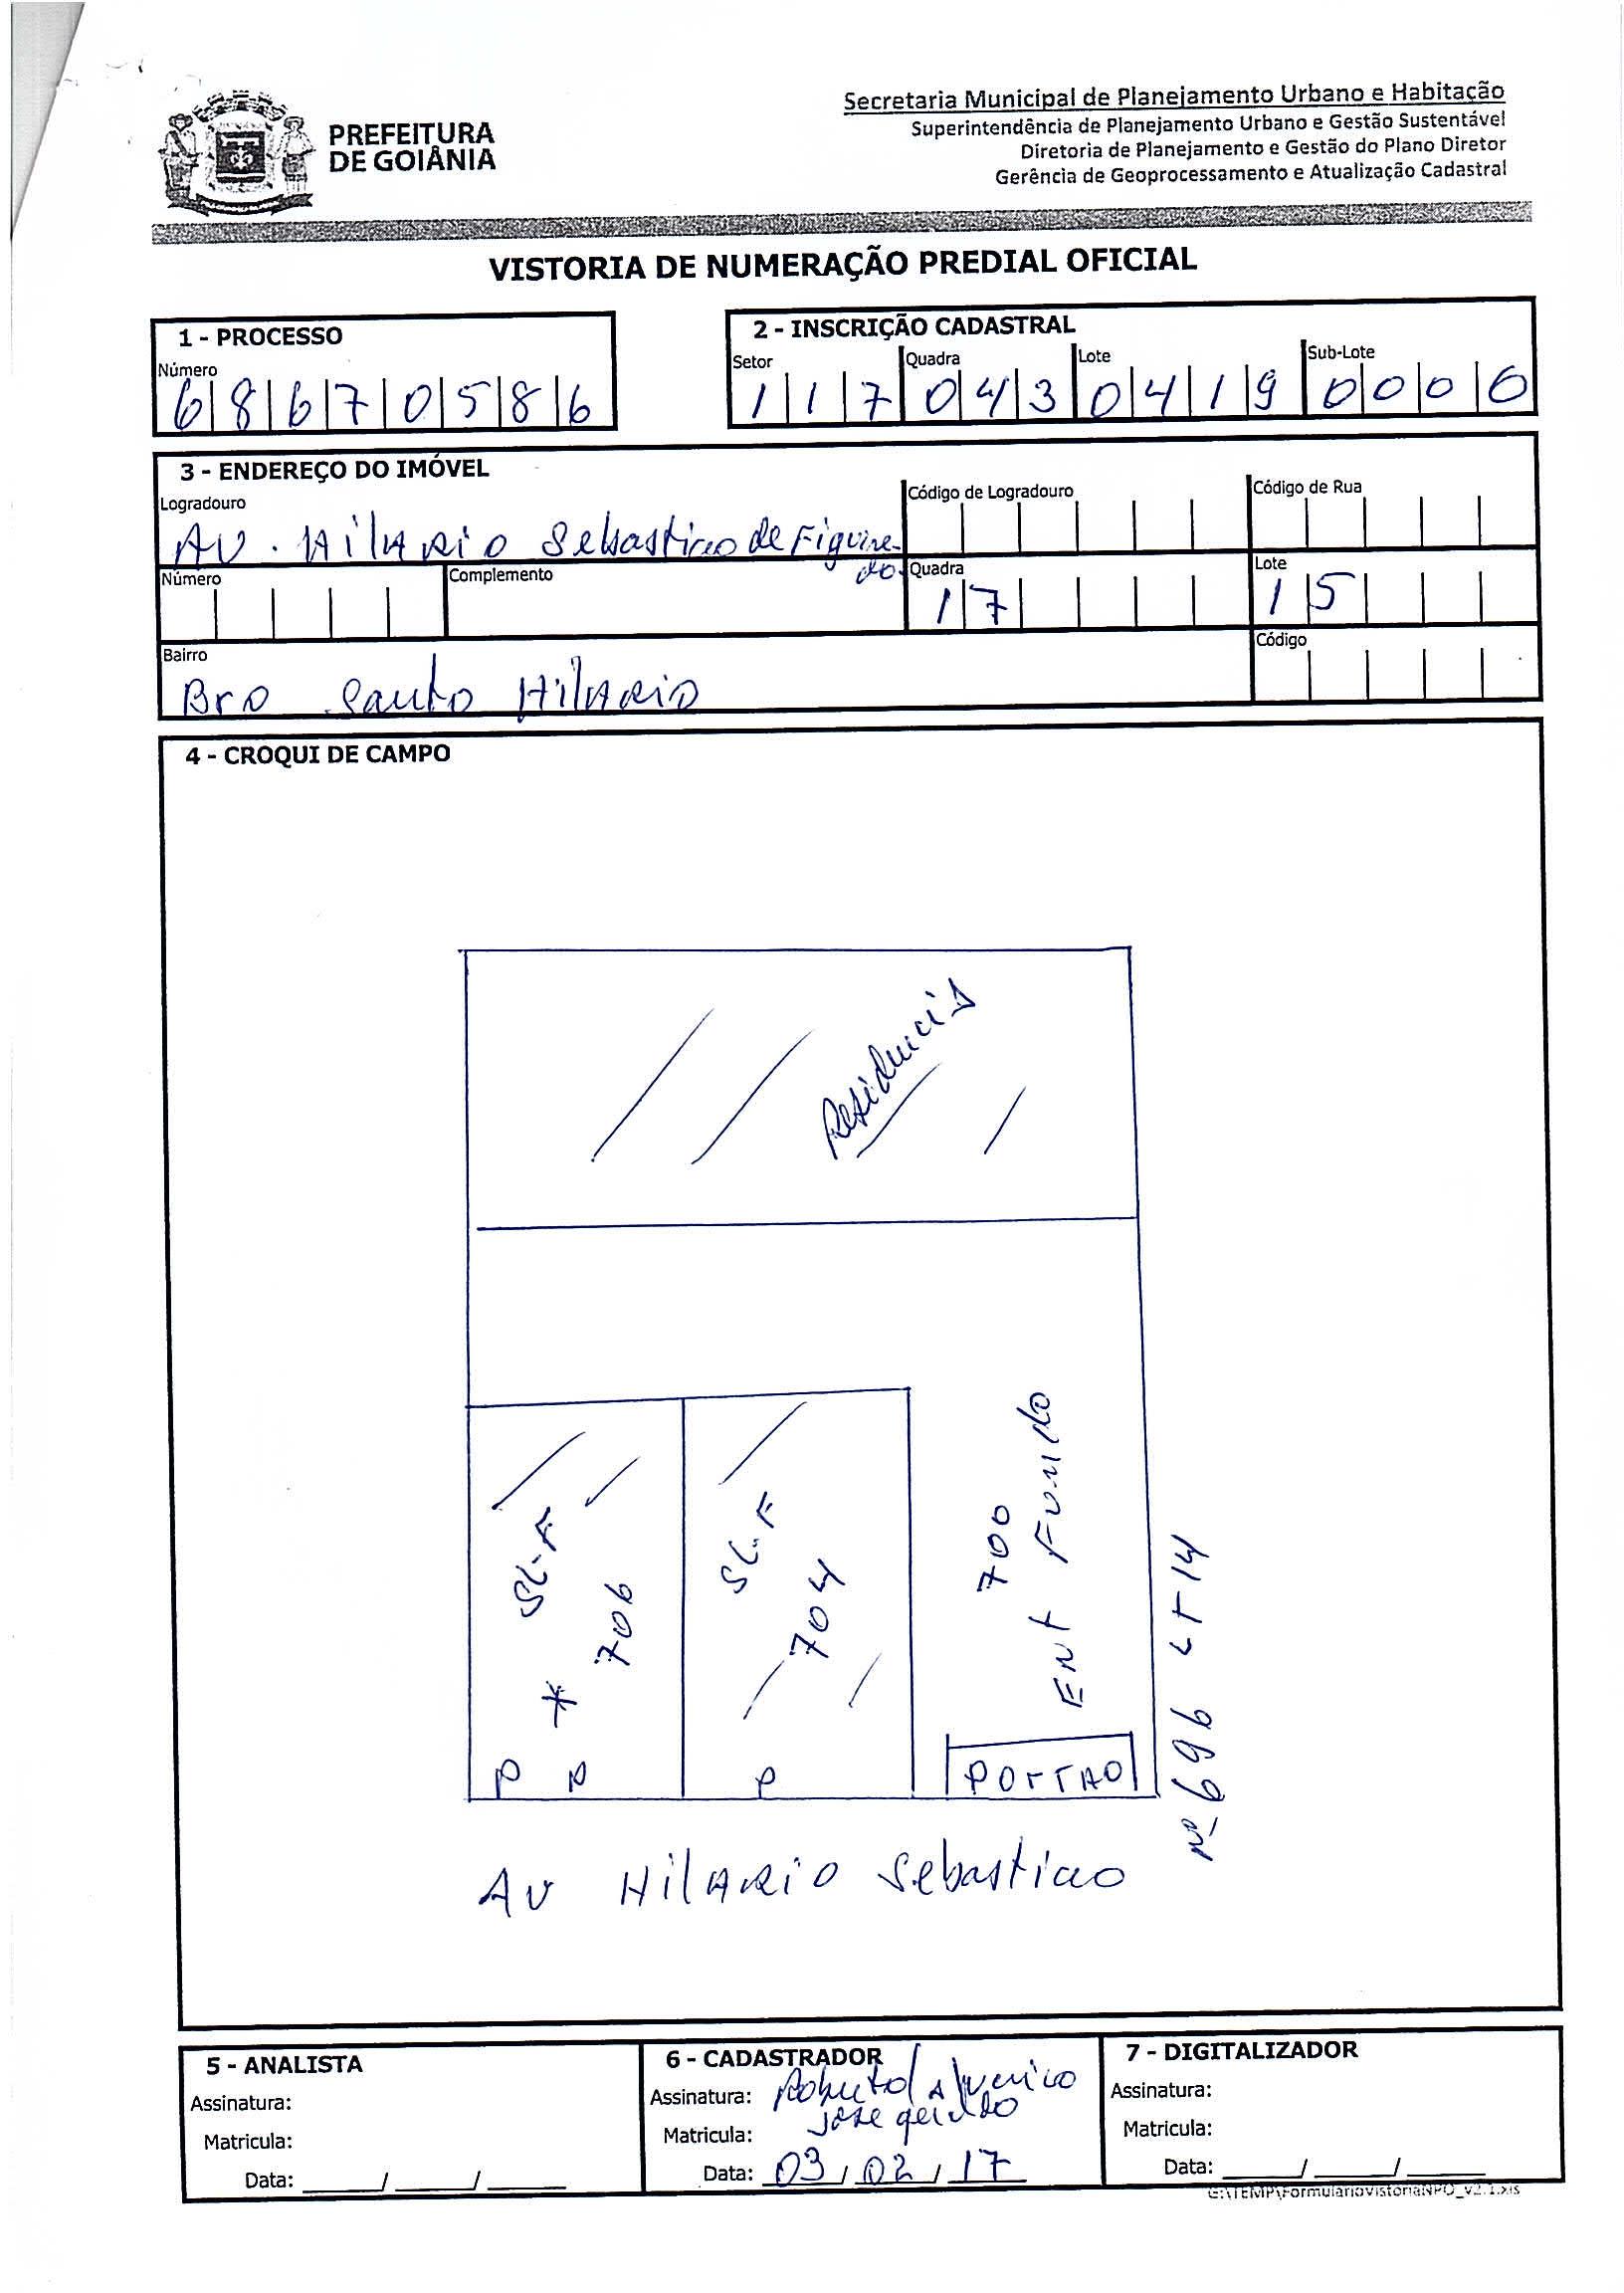 PREFEITURA
DE GOIÂNIA
Secretaria Municipal de Planejamento Urbano e Habitação
Superintendência de Planejamento Urbano e Gestão Sustentável
Diretoria de Planejamento e Gestão do Plano Diretor
Gerência de Geoprocessamento e Atualização Cadastral
VISTORIA DE NUMERAÇÃO PREDIAL OFICIAL
1 - PROCESSO
Número
68670586
2 - INSCRIÇÃO CADASTRAL
Setor Quadra Lote Sub-Lote
117 043 0419 0000
3 - ENDEREÇO DO IMÓVEL
Logradouro Código de Logradouro Código de Rua
AV. Hilario Sebastiao de Figueire-
do
Número Complemento Quadra Lote
17 15
Bairro Código
Bro Santo Hilario
4 - CROQUI DE CAMPO
Residencia
SL-F
* 706
SL-F
704
700
Ent Fundo
P P
P
PORTAO
Nº 696 LT 14
AV Hilario Sebastiao
5 - ANALISTA
Assinatura:
Matricula:
Data: ____/____/____
6 - CADASTRADOR
Assinatura: Roberto
jose geraldo
Matricula:
Data: 03/02/17
7 - DIGITALIZADOR
Assinatura:
Matricula:
Data: ____/____/____
G:\TEMP\FormularioVistoriaNPO_v2.1.xls